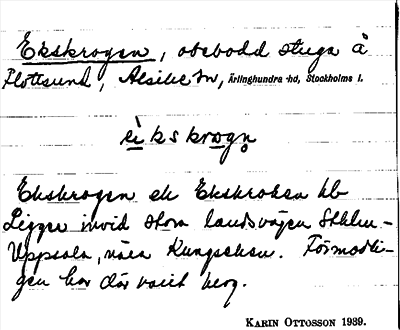 Ekskrogen, obebodd stuga å
Flottsund, Alsike sn, Ärlinghundra hd, Stockholms l.
èkskrogn̥
Ekskrogen el. Ekskroken kb
Ligger invid stora landsvägen Sthlm-
Uppsala, nära Kungseken. Förmodli-
gen har där varit krog.
KARIN OTTOSSON 1939.